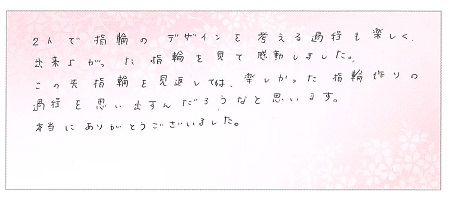 2人で指輪のデザインを考える過程も楽しく、
出来上がった指輪を見て感動しました。
この先指輪を見返しては、楽しかった指輪作りの
過程を思い出すんだろうなと思います。
本当にありがとうございました。